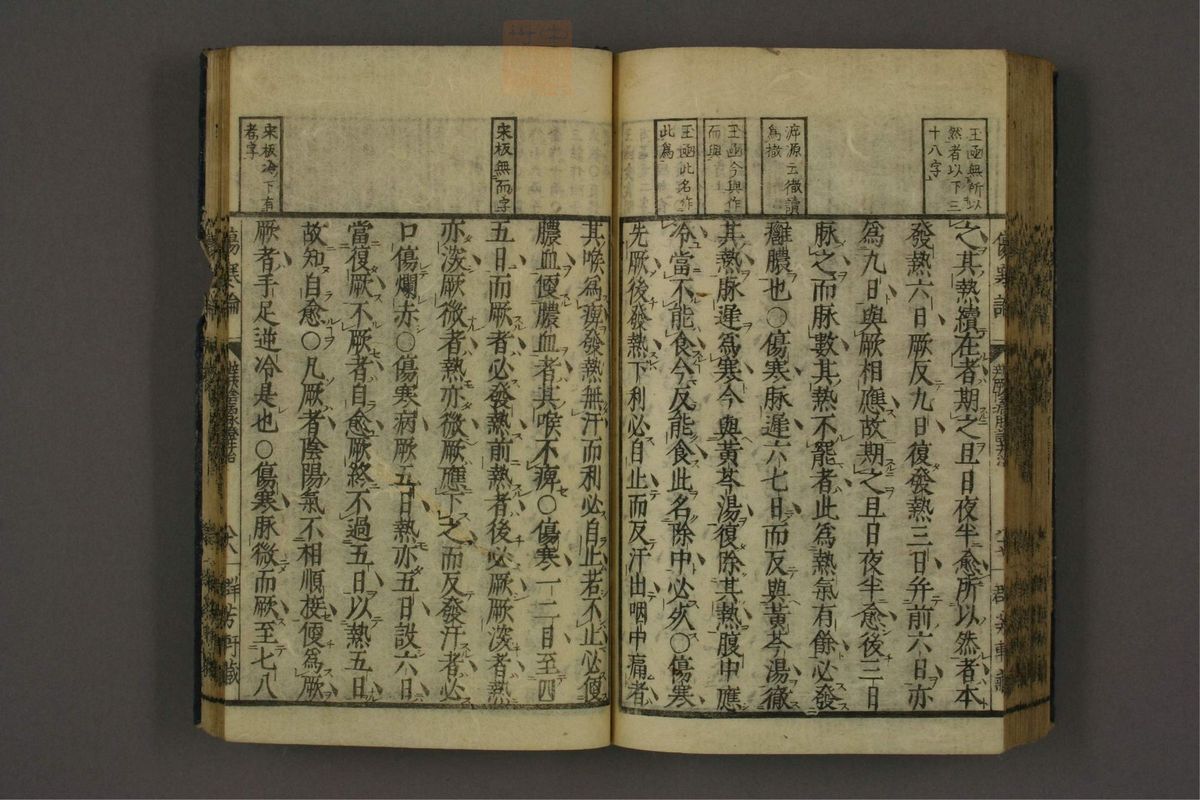 玉函無所以
然者以下三
十八字
㳽源云徹讀
為撤
玉函今與作
而與
玉函此名作
此為
之其熱續在者期之旦日夜半愈所以然者本
發熱六日厥反九日復發熱三日幷前六日亦
為九日與厥相應故期之旦日夜半愈後三日
脉之而脉數其熱不罷者此為熱氣有餘必發
癰膿也○傷寒脉遲六七日而反與黃芩湯徹
其熱脉遲為寒今與黃芩湯復除其熱腹中應
冷當不能食今反能食此名除中必死○傷寒
先厥後發熱下利必自止而反汗出咽中痛者
宋板無而字
宋板為下有
者字
其喉為痹發熱無汗而利必自止若不止必便
膿血便膿血者其喉不痹○傷寒一二日至四
五日而厥者必發熱前熱者後必厥厥深者熱
亦深厥微者熱亦微厥應下之而反發汗者必
口傷爛赤○傷寒病厥五日熱亦五日設六日
當復厥不厥者自愈厥終不過五日以熱五日
故知自愈○凡厥者陰陽氣不相順接便為厥
厥者手足逆冷是也○傷寒脉微而厥至七八
傷寒論
傷寒論